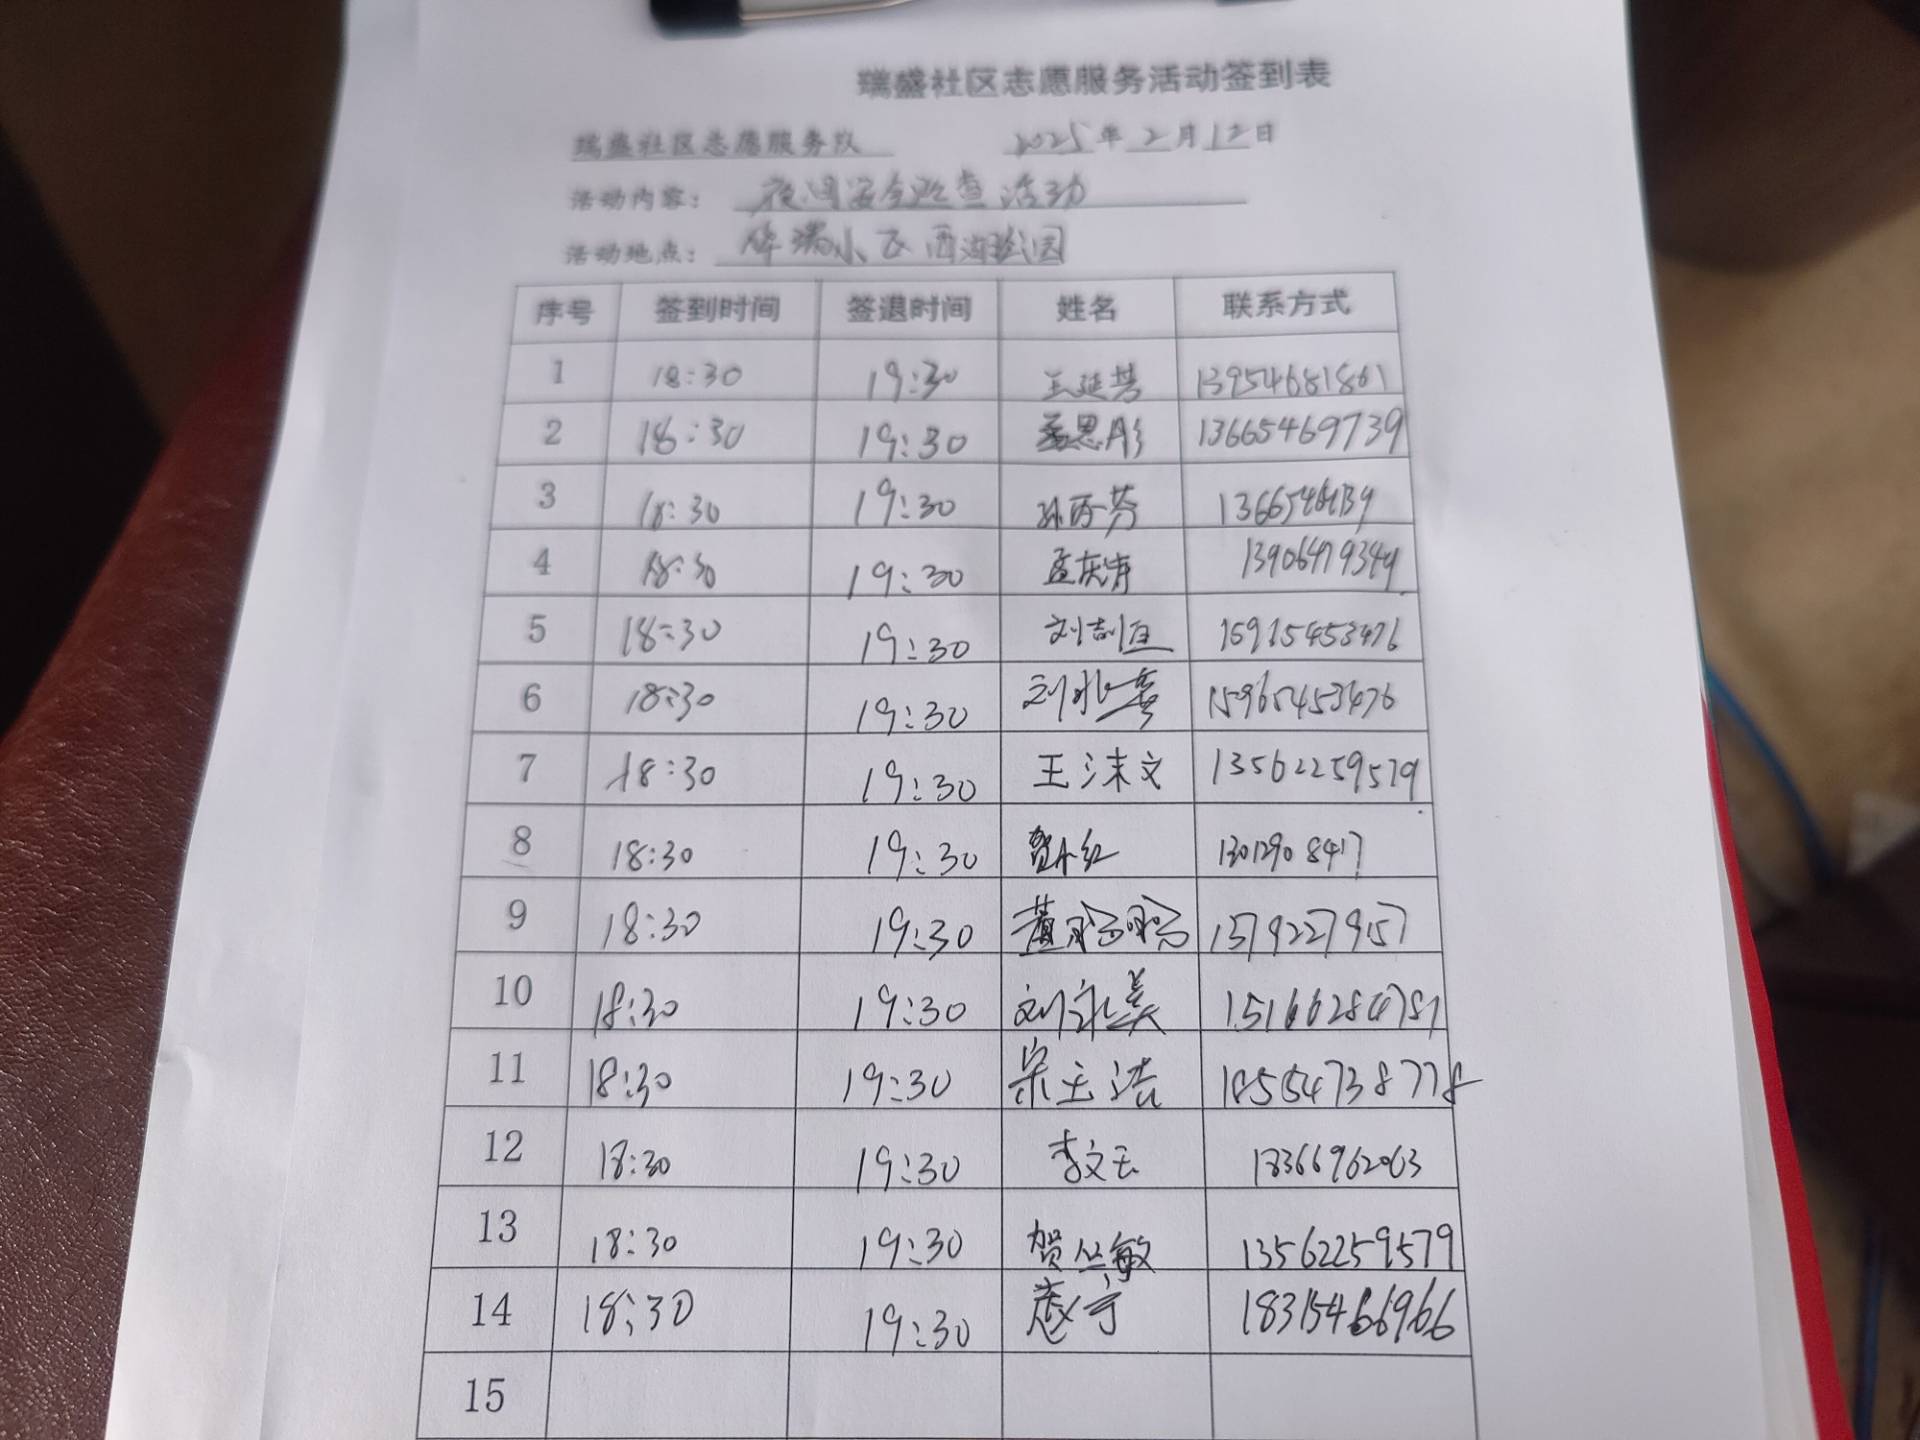 瑞盛社区志愿服务活动签到表
瑞盛社区志愿服务队 2025年2月12日
活动内容: 夜间安全巡查活动
活动地点: 华瑞小区西湖公园
序号 签到时间 签退时间 姓名 联系方式
1 18:30 19:30 王延芳 13954681861
2 18:30 19:30 孟思彤 13665469739
3 18:30 19:30 孙丙芬
4 18:30 19:30 孟庆涛
5 18:30 19:30 15915453476
6 18:30 19:30 15965453476
7 18:30 19:30 王沫文 13562259579
8 18:30 19:30 13012908417
9 18:30 19:30
10 18:30 19:30 刘永美 15166284781
11 18:30 19:30 宋玉洁 18554738778
12 18:30 19:30 李文玉 18366962063
13 18:30 19:30 贺丛敏 13562259579
14 18:30 19:30 18315466966
15